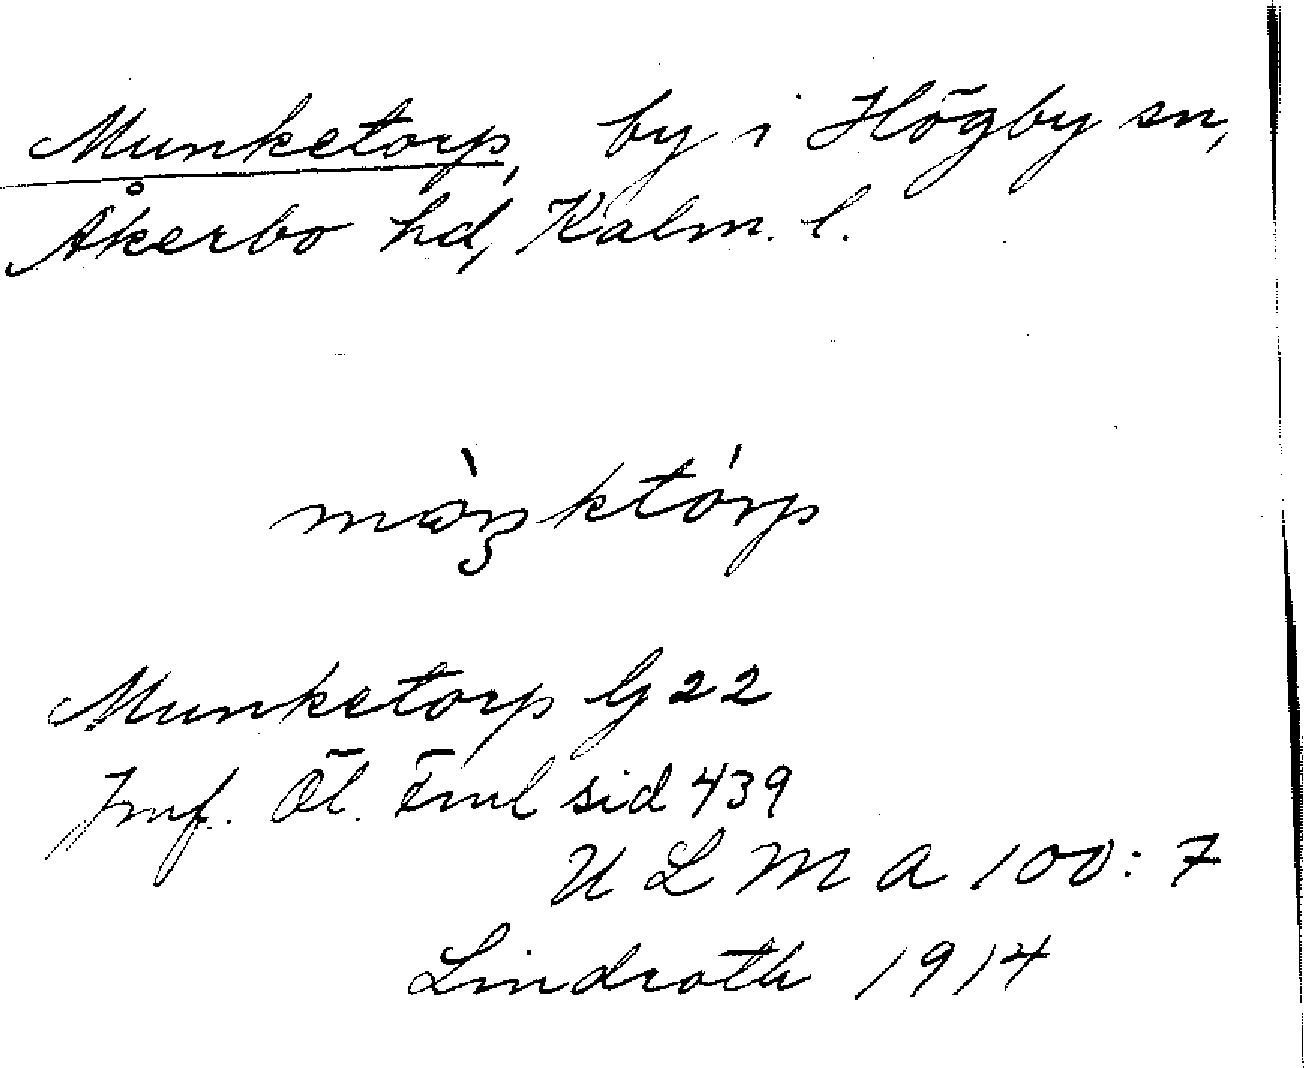 Munketorp, by i Högby sn,
Åkerbo hd, Kalm. l.
mòŋktórp
Munketorp G 22
Jmf. Öl. Fml sid 439
U L M A 100:7
Lindroth 1914